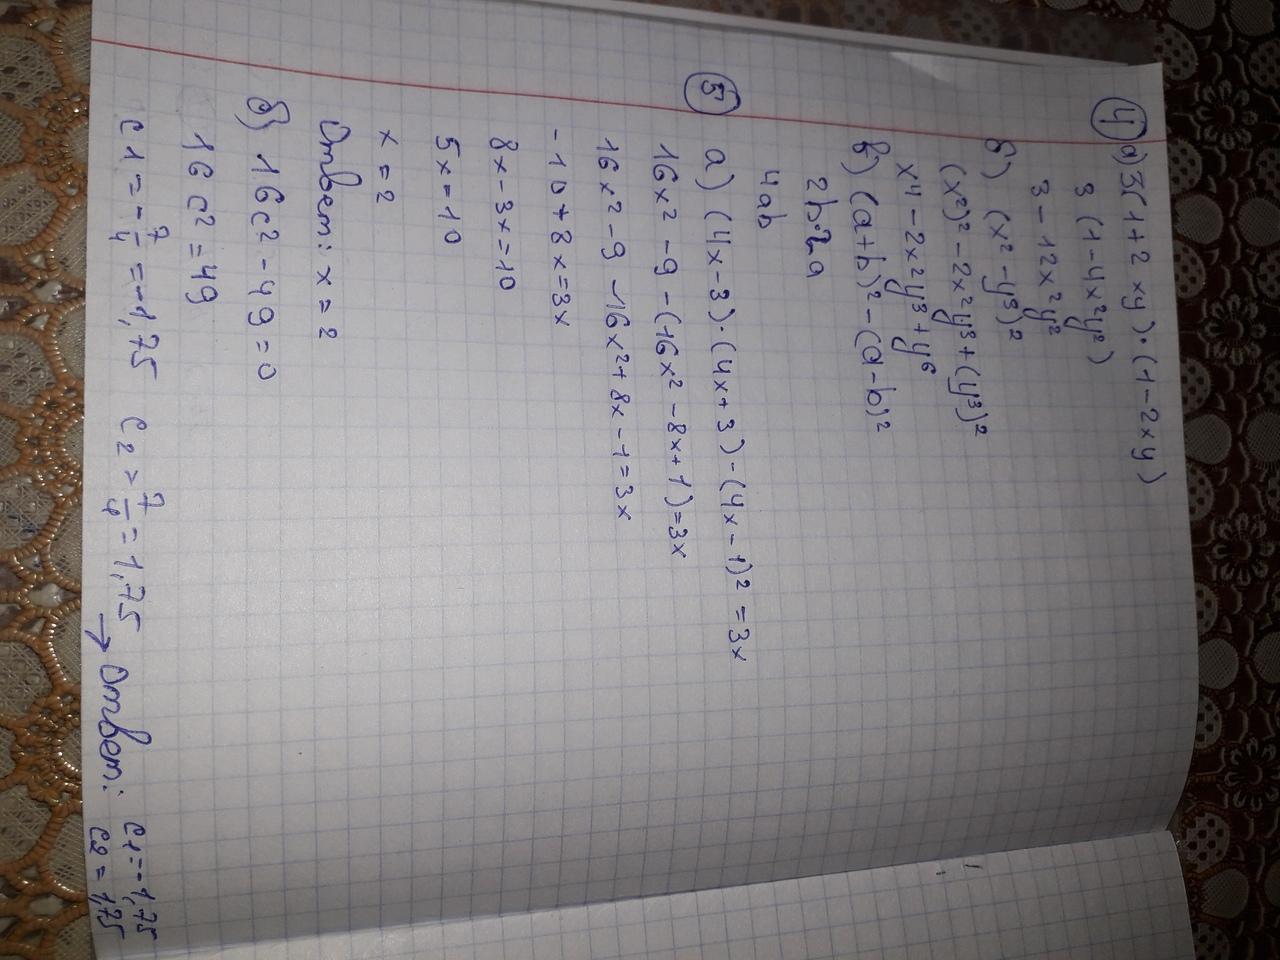 4 а) 3(1+2xy)·(1-2xy)
3(1-4x²y²)
3-12x²y²
б) (x²-y³)²
(x²)²-2x²y³+(y³)²
x⁴-2x²y³+y⁶
в) (a+b)²-(a-b)²
2b·2a
4ab
5 а) (4x-3)·(4x+3)-(4x-1)²=3x
16x²-9-(16x²-8x+1)=3x
16x²-9-16x²+8x-1=3x
-10+8x=3x
8x-3x=10
5x=10
x=2
Ответ: x=2
б) 16c²-49=0
16c²=49
c1=-7/4=-1,75 c2>7/4=1,75 → Ответ: c1=-1,75
c2=1,75